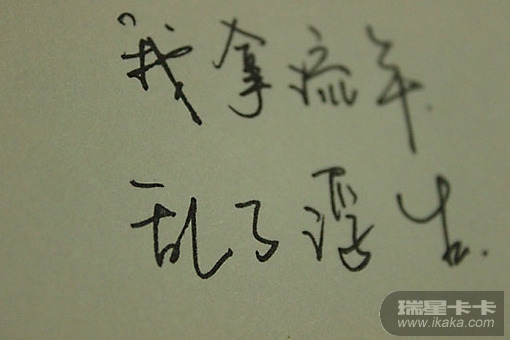 “我拿流年
乱了浮生.
瑞星卡卡
www.ikaka.com